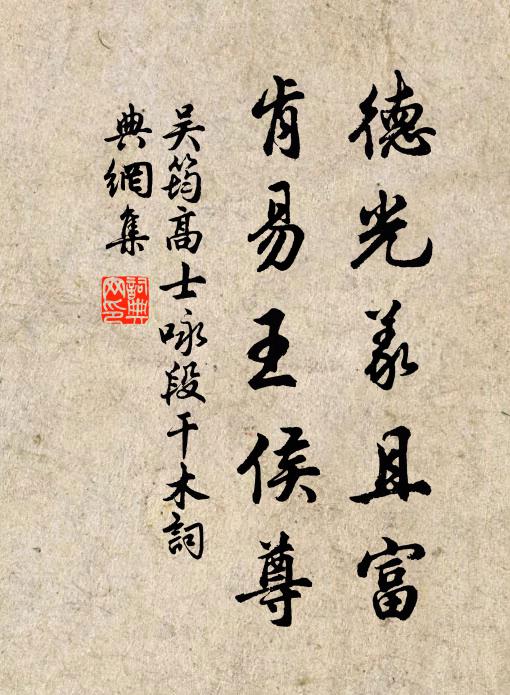 德光義且富
肯易王侯尊
吴筠高士咏段干木詞
典網集
詞典網印